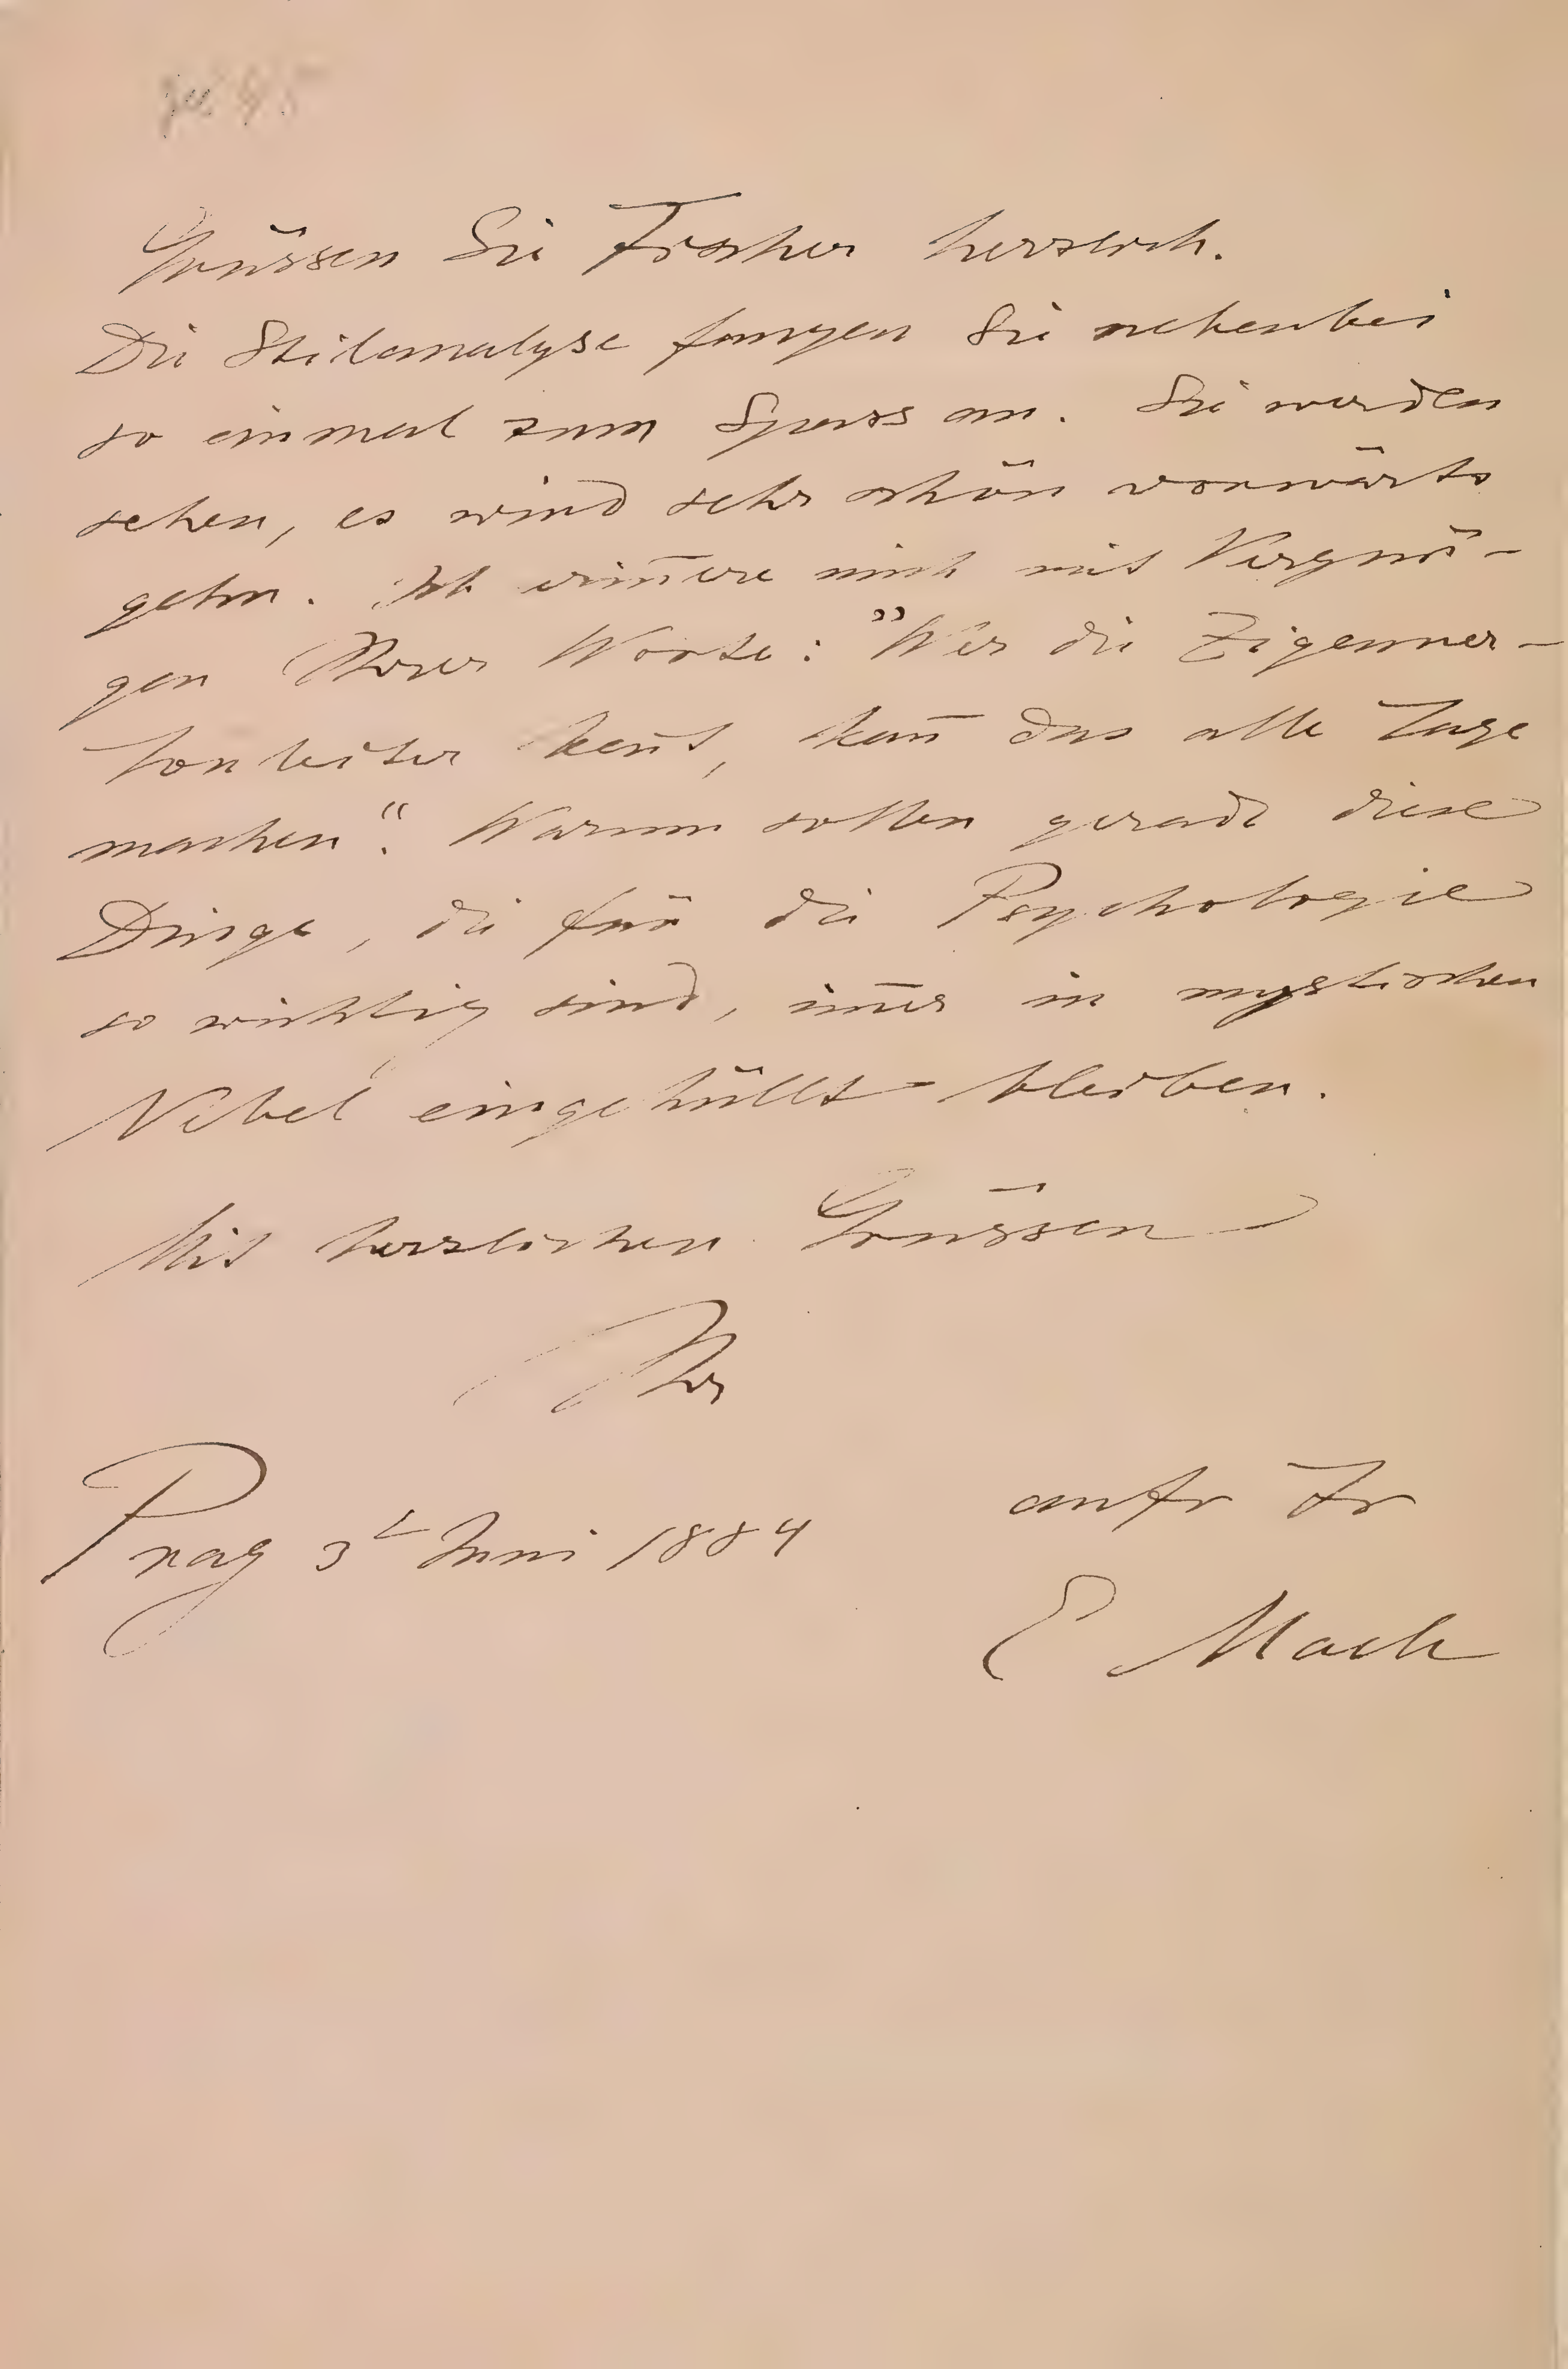 Grüssen Sie Fischer herzlich.
Die Stilanalyse fangen Sie nebenbei
so einmal zum Spass an. Sie werden
sehen, es wird sehr schön vorwärts
gehn. Ich erin̄ere mich mit Vergnü-
gen Ihrer Worte: "Wer die Zigeuner-
tonleiter ken̄t, kan̄ das alle Tage
machen“. Warum sollen gerade diese
Dinge, die für die Psychologie
so wichtig sind, im̄er in mystischen
Nebel eingehüllt bleiben.
Mit herzlichen Grüssen
Ihr
aufr Fr
Prag 3t Juni 1884
E Mach